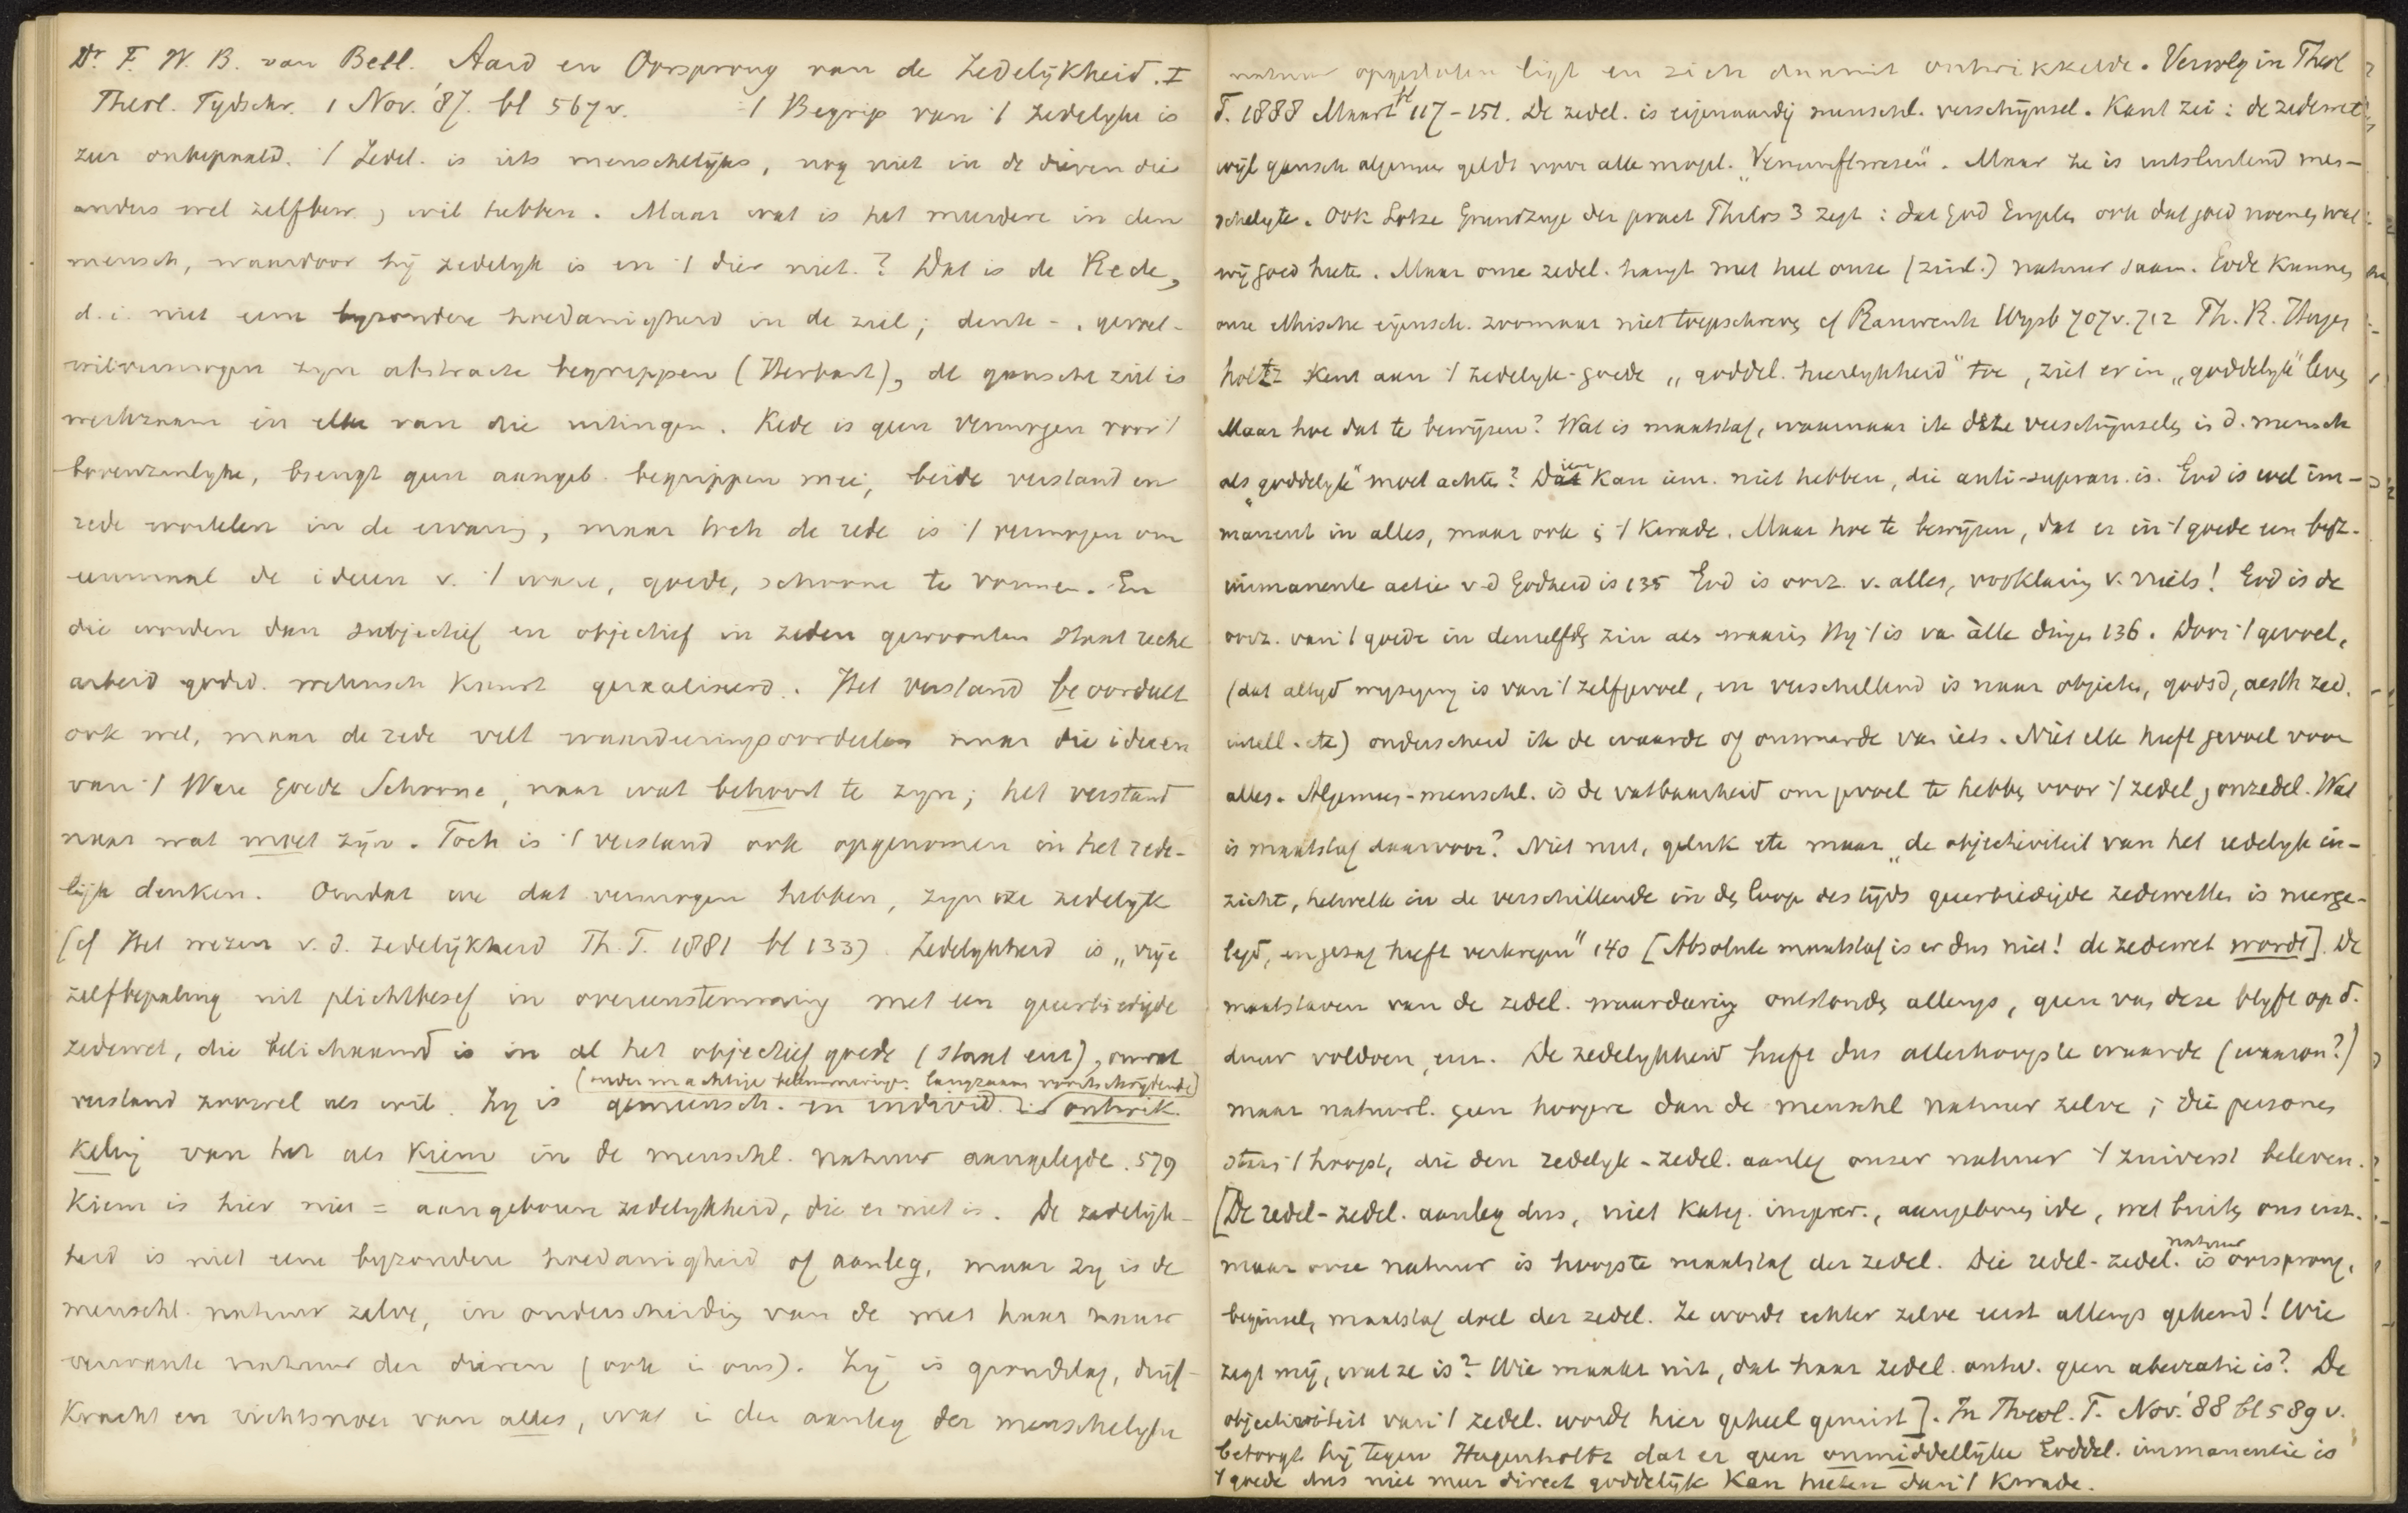 Dr. F. W. B. van Bell. Aard en Oorsprong van de Zedelijkheid. I
Theol. Tydschr. 1 Nov. '87. bl 567 v. 't Begrip van 't zedelyke is
zeer onbepaald. 't Zedel. is iets menschelijks, nog niet in de dieren die
anders wel zelfbew., wil hebben. Maar wat is het meerdere in den
mensch, waardoor hij zedelyk is en 't dier niet.? Dat is de Rede,
d.i. niet eene byzondere hoedanigheid in de ziel; denk-, gevoel-
wilvermogen zyn abstracte begrippen (Herbart), de gansche ziel is
werkzaam in elke van die uitingen. Rede is geen vermogen voor 't
bovenzinlyke, brengt geen aangeb. begrippen mee, beide verstand en
rede wortelen in de ervaring, maar toch de rede is 't vermogen om
eenmaal de ideeen v. 't ware, goede, schoone te vormen. En
die worden dan subjectief en objectief in zeden gewoonten staat recht
arbeid godsd. wetensch kunst gerealiseerd. Het verstand beoordeelt
ook wel, maar de rede velt waardeeringsoordeelen naar die ideeen
van 't Ware Goede Schoone, naar wat behoort te zyn; het verstand
naar wat moet zijn. Toch is 't verstand ook opgenomen in het rede-
lijk denken. Omdat we dat vermogen hebben, zyn we zedelyk
(cf Het wezen v. d. Zedelijkheid Th. T. 1881 bl 133). Zedelykheid is „vrije
zelfbepaling uit plichtbesef in overeenstemming met een geerbiedigde
zedewet, die belichaamd is in al het objectief goede (staat enz), omvat
(onder machtige belemmeringen langzaam voortschrijdende)
verstand zoowel als wil. Zy is gemeensch. en individ. ontwik-
keling van het als kiem in de menschl. natuur aangelegde. 579
Kiem is hier niet = aangeboren zedelykheid, die er niet is. De zedelijk-
heid is niet eene byzondere hoedanigheid of aanleg, maar zy is de
menschl. natuur zelve, in onderscheiding van de met haar nauw
verwante natuur der dieren (ook in ons). Zij is grondslag, drijf-
kracht en richtsnoer van alles, wat in den aanleg der menschelyke
natuur opgesloten ligt en zich daaruit ontwikkelde. Vervolg in Theol
T. 1888 Maart bl 117-151. De zedel. is eigenaardig menschl. verschijnsel. Kant zei: de zedewet
wijl gansch algemeen geldt voor alle mogel. „Vernunftwesen". Maar ze is uitsluitend men-
schelyk. Ook Lotze Grundzuge der pract Philos 3 zegt: dat God Engelen ook dat goed noemen wat
wij goed heeten. Maar onze zedel. hangt met heel onze (zinl.) natuur saam. Gode kunnen
onze ethische eigensch. zoomaar niet toeschreven cf Rauwenh Wysb 707v. 712 Ph. R. Hugen
holtz kent aan 't zedelyk-goede „goddel. heerlykheid" toe, ziet er in „goddelyk" leven
Maar hoe dat te bewijzen? Wat is maatstaf, waarnaar ik deze verschijnselen in d. mensch
als „goddelyk" moet achten? Dien kan iem. niet hebben, die anti-supran. is. God is wel im-
manent in alles, maar ook in 't kwade. Maar hoe te bewijzen, dat er in 't goede een byz.
immanente actie v. d Godheid is 135 God is oorz. v. alles, verklaring v. niets! God is de
oorz. van 't goede in denzelfden zin als waarin Hy 't is van àlle dingen 136. Door 't gevoel,
(dat altyd wyziging is van 't zelfgevoel, en verschillend is naar objecten, godsd, aesth zed.
intell. etc) onderscheid ik de waarde of onwaarde van iets. Niet elk heeft gevoel voor
alles. Algemeen-menschl. is de vatbaarheid om gevoel te hebben voor 't zedel, onzedel. Wat
is maatstaf daarvoor? Niet nut, geluk etc maar „de objectiviteit van het redelyk in-
zicht, hetwelk in de verschillende in den loop des tijds geerbiedigde zedewetten is neerge-
legd, en gezag heeft verkregen" 140 [Absolute maatstaf is er dus niet! de zedewet wordt]. De
maatstaven van de zedel. waardeering ontstonden allengs, geen van deze blyft op d.
duur voldoen, enz. De zedelykheid heeft dus allerhoogste waarde (waarom?)
maar natuurl. geen hoogere dan de menschl natuur zelve; die personen
staan 't hoogst, die den redelyk-zedel. aanleg onzer natuur 't zuiverst beleven.
[De redel-zedel. aanleg dus, niet kateg. imper., aangeboren idee, wet buiten ons enz.
maar onze natuur is hoogste maatstaf der zedel. Die redel-zedel. natuur is oorsprong,
beginsel, maatstaf doel der zedel. Ze wordt echter zelve eerst allengs gekend! Wie
zegt mij, wat ze is? Wie maakt uit, dat haar zedel. ontw. geen aberratie is? De
objectiviteit van 't zedel. wordt hier geheel gemist]. In Theol. T. Nov. '88 bl 589 v.
betoogt hij tegen Hugenholtz dat er geen onmiddellijke Goddel. immanentie is
't goede dus niet meer direct goddelijk kan heeten dan 't kwade.